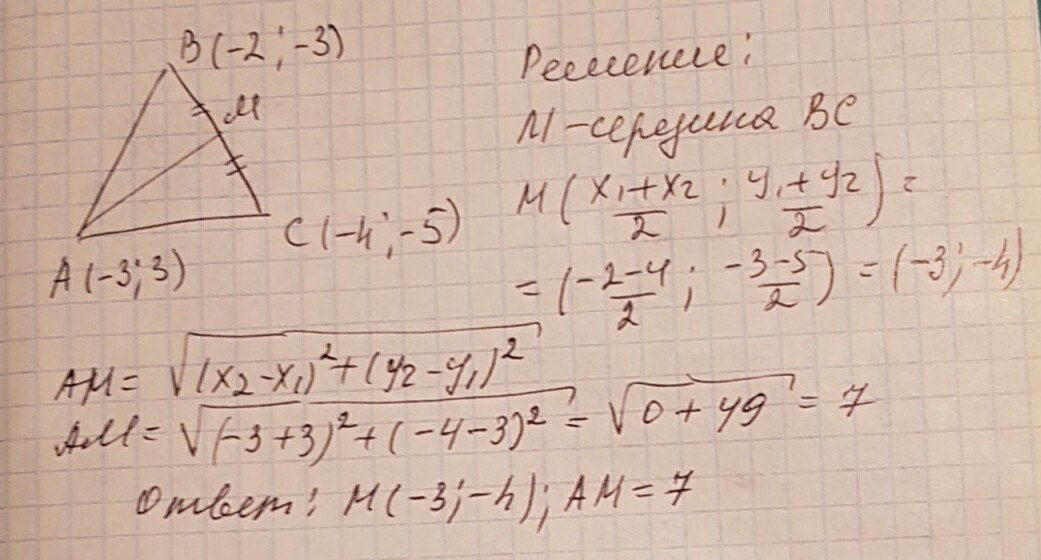 B(-2;-3)
M
C(-4;-5)
A(-3;3)
Решение:
М-середина BC
M(x₁+x₂/2; y₁+y₂/2) =
= (-2-4/2; -3-5/2) = (-3;-4)
AM = √(x₂-x₁)²+(y₂-y₁)²
AM = √(-3+3)²+(-4-3)² = √0+49 = 7
Ответ: M(-3;-4); AM=7